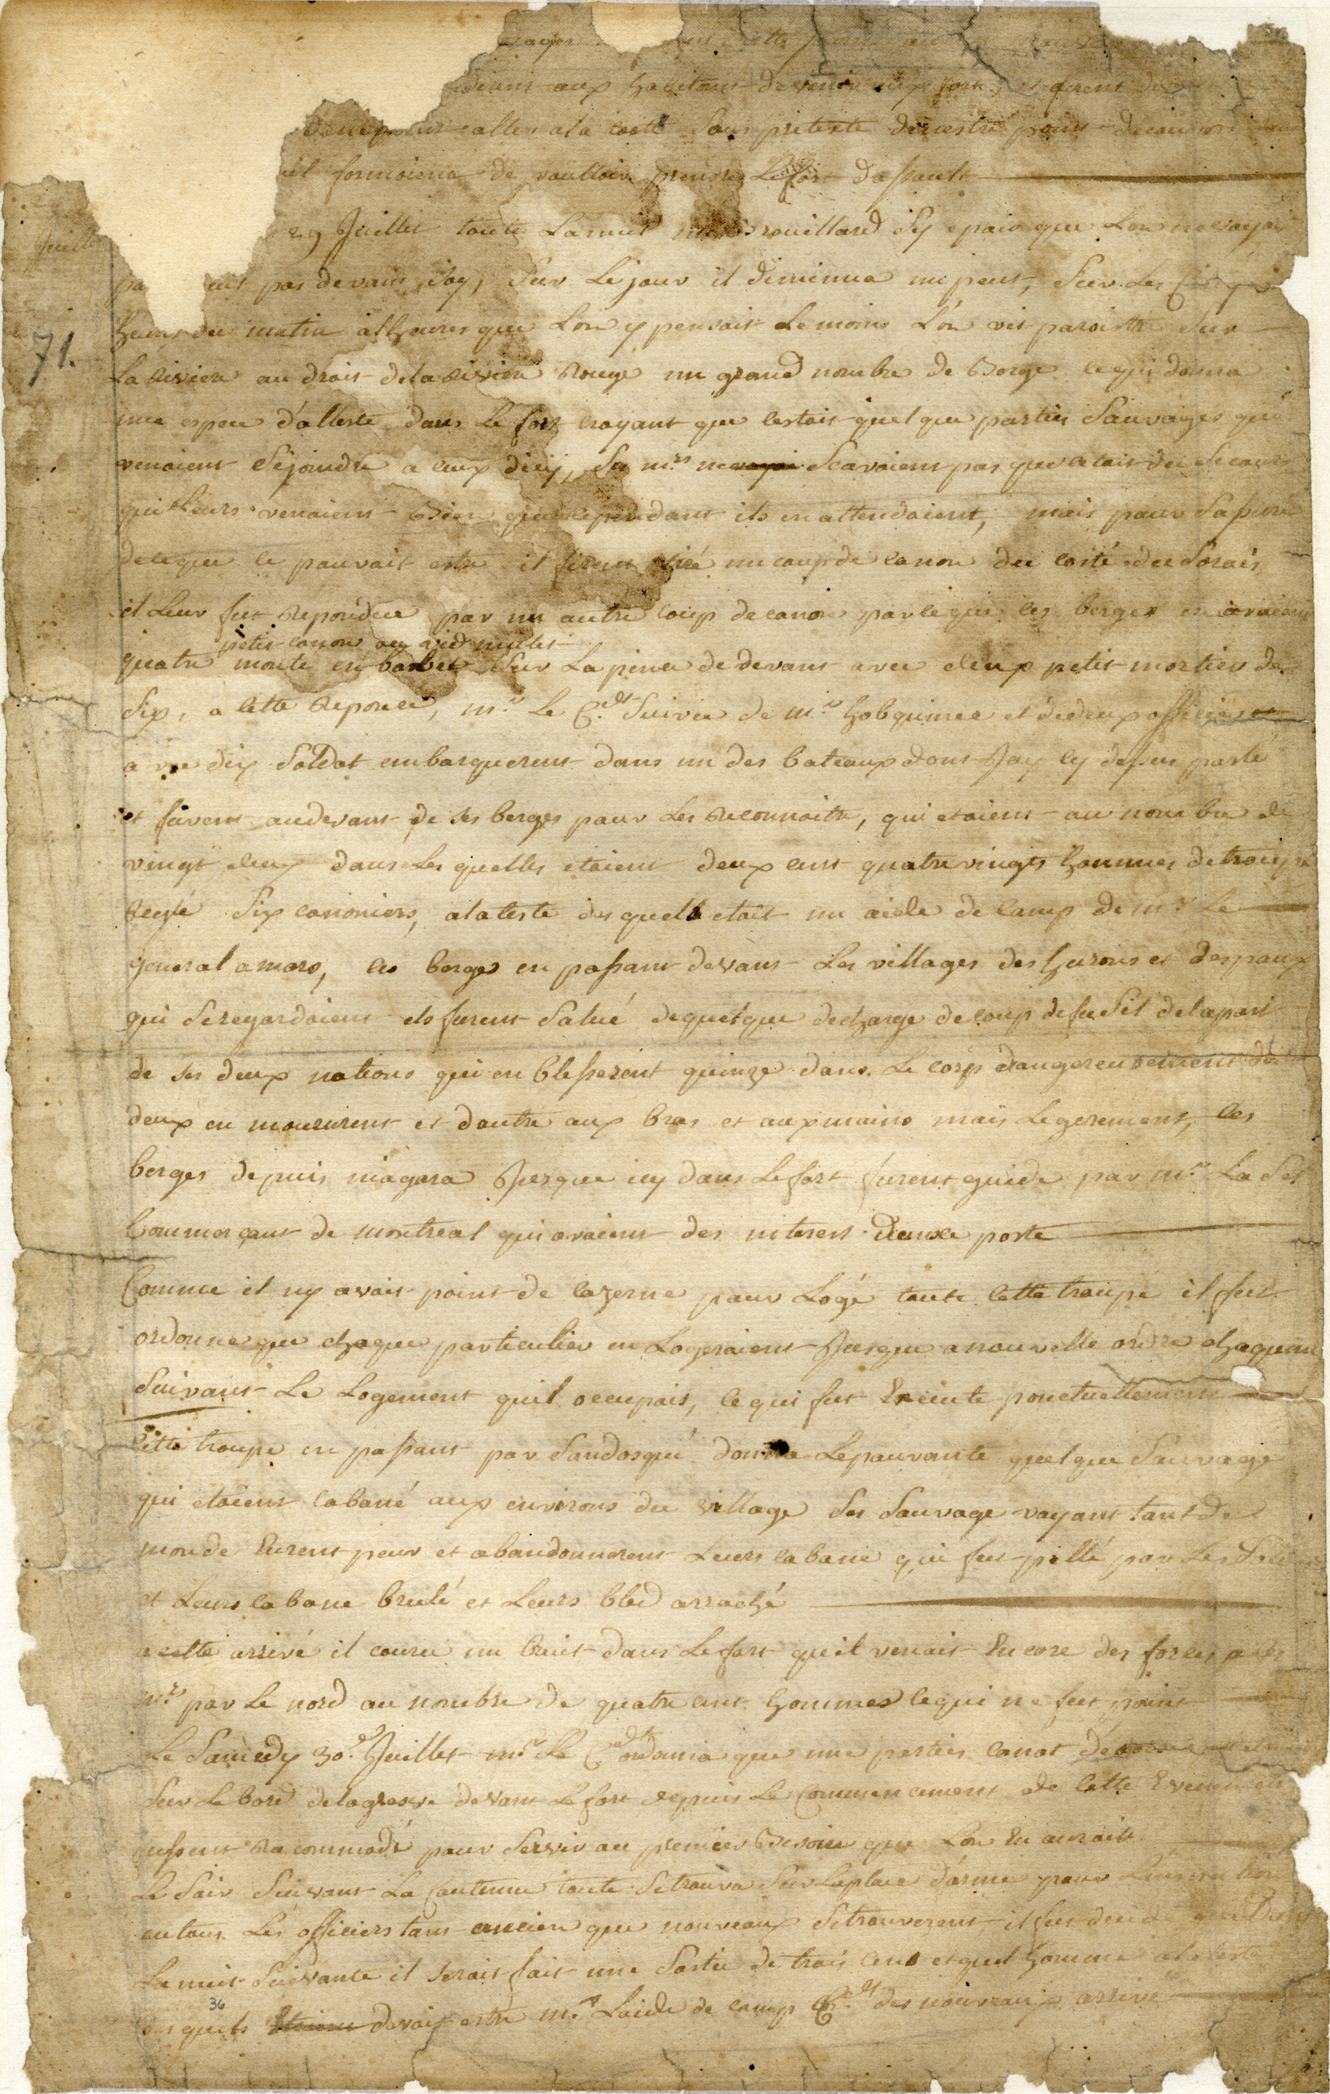 aux habitans de venir aux fort, et furent
aller a la coste Sous preteste de mestre pour decouvrir
il formoient de voulloir prendre Le fort dassault
Juillet
29 Juillet toute La nuit rouillard Sy epais que Lon ne voyoit
pas devans Soy, Sur Le jour il diminua un peut, Sur Les Cinq
71.
heures du matin a lheures que Lon y pensait Le moins L'on vit paroitre Sur
La Riviere au droit de la Riviere Rouge un grand nombre de Berge ce qui donna
une espece d'allerte dans Le fort croyant que cestoit quelque parties Sauvages qui
venoient Sejoindre a ceux dicy, Ses mrs ne Scavoient pas que cetait du Secours
qui Leurs venoient Bien que cependant ils en attendoient, mais pour Sassurer
de ce que ce pouvait estre il firent tiré un coup de canon du costé du Sorais
il Leur fut Repondue par un autre coup de canon parce que les berges en avaient
petit canon
quatre monté en barbet Sur La pince de devans avec deux petit mortier de
Six, a cette Reponce, mr. Le Cdt. Suivie de mr. hobquince et de deux officiers et
a vec dix Soldat embarquerent dans un des bateaux dont Jay cy dessus parlé
et furent audevant de ses berges pour Les Reconnoitre, qui etoient au nombre de
vingt deux dans Les quelles etoient deux cent quatre vingts hommes de troupe
Reglé Six canoniers, a la teste des quells etait un aide de camp de mr Le
general amors, ces berges en passant devans Les villages des hurons et des poux
qui Seregardoient ils furent Salué de quelque decharge de coup de fusil de la part
de Ses deux nations qui en blesserent quinze dans Le corp dangereusement
deux en moururent et dautre aux bras et aux mains mais Legerement, ces
berges depuis niagara Jusque icy dans Le fort furent guidé par mr. La
Commerçant de montreal qui avaient des interest dans ce poste
Comme il ny avait point de cazerne pour Logé toute Cette troupe il fut
ordonné que chaque particulier en Logeraient Jusque a nouvelle ordre chaqu'un
Suivant Le Logement quil occupait, ce qui fut Execute ponctuellement
Cette troupe en passant par Sandosqué donna Lepouvante quelque Sauvage
qui etoient cabané aux environs du village Ses Sauvage voyant tant de
monde Eurent peur et abandonnerent Leurs cabane qui fut pillé par Les
et Leurs cabane brulé et Leurs bled arraché
a cette arrivé il couru un bruit dans Le fort qu'il venait Encore des forces a Ses
mrs par Le nord au nombre de quatre cent hommes ce qui ne fut point
Le Samedy 30e Juillet mr Le Cdt ordonna que une parties canot
Sur Le bord de la greve devant Le fort depuis Le Commencement de cette Evenement
fussent Racommodé pour Servir au premier Besoin que Lon En aurait
Le Soir Suivant La Coutume toute Setrouva Sur La place d'arme pour
Les officiers tant ancien que nouveaux Setrouverent il fut decidé que
La nuit Suivante il Serait fait une Sortie de trois cens et quel homme a la teste
36
des quels devait estre mr Laide de camp Cdt des nouveaux arrivé